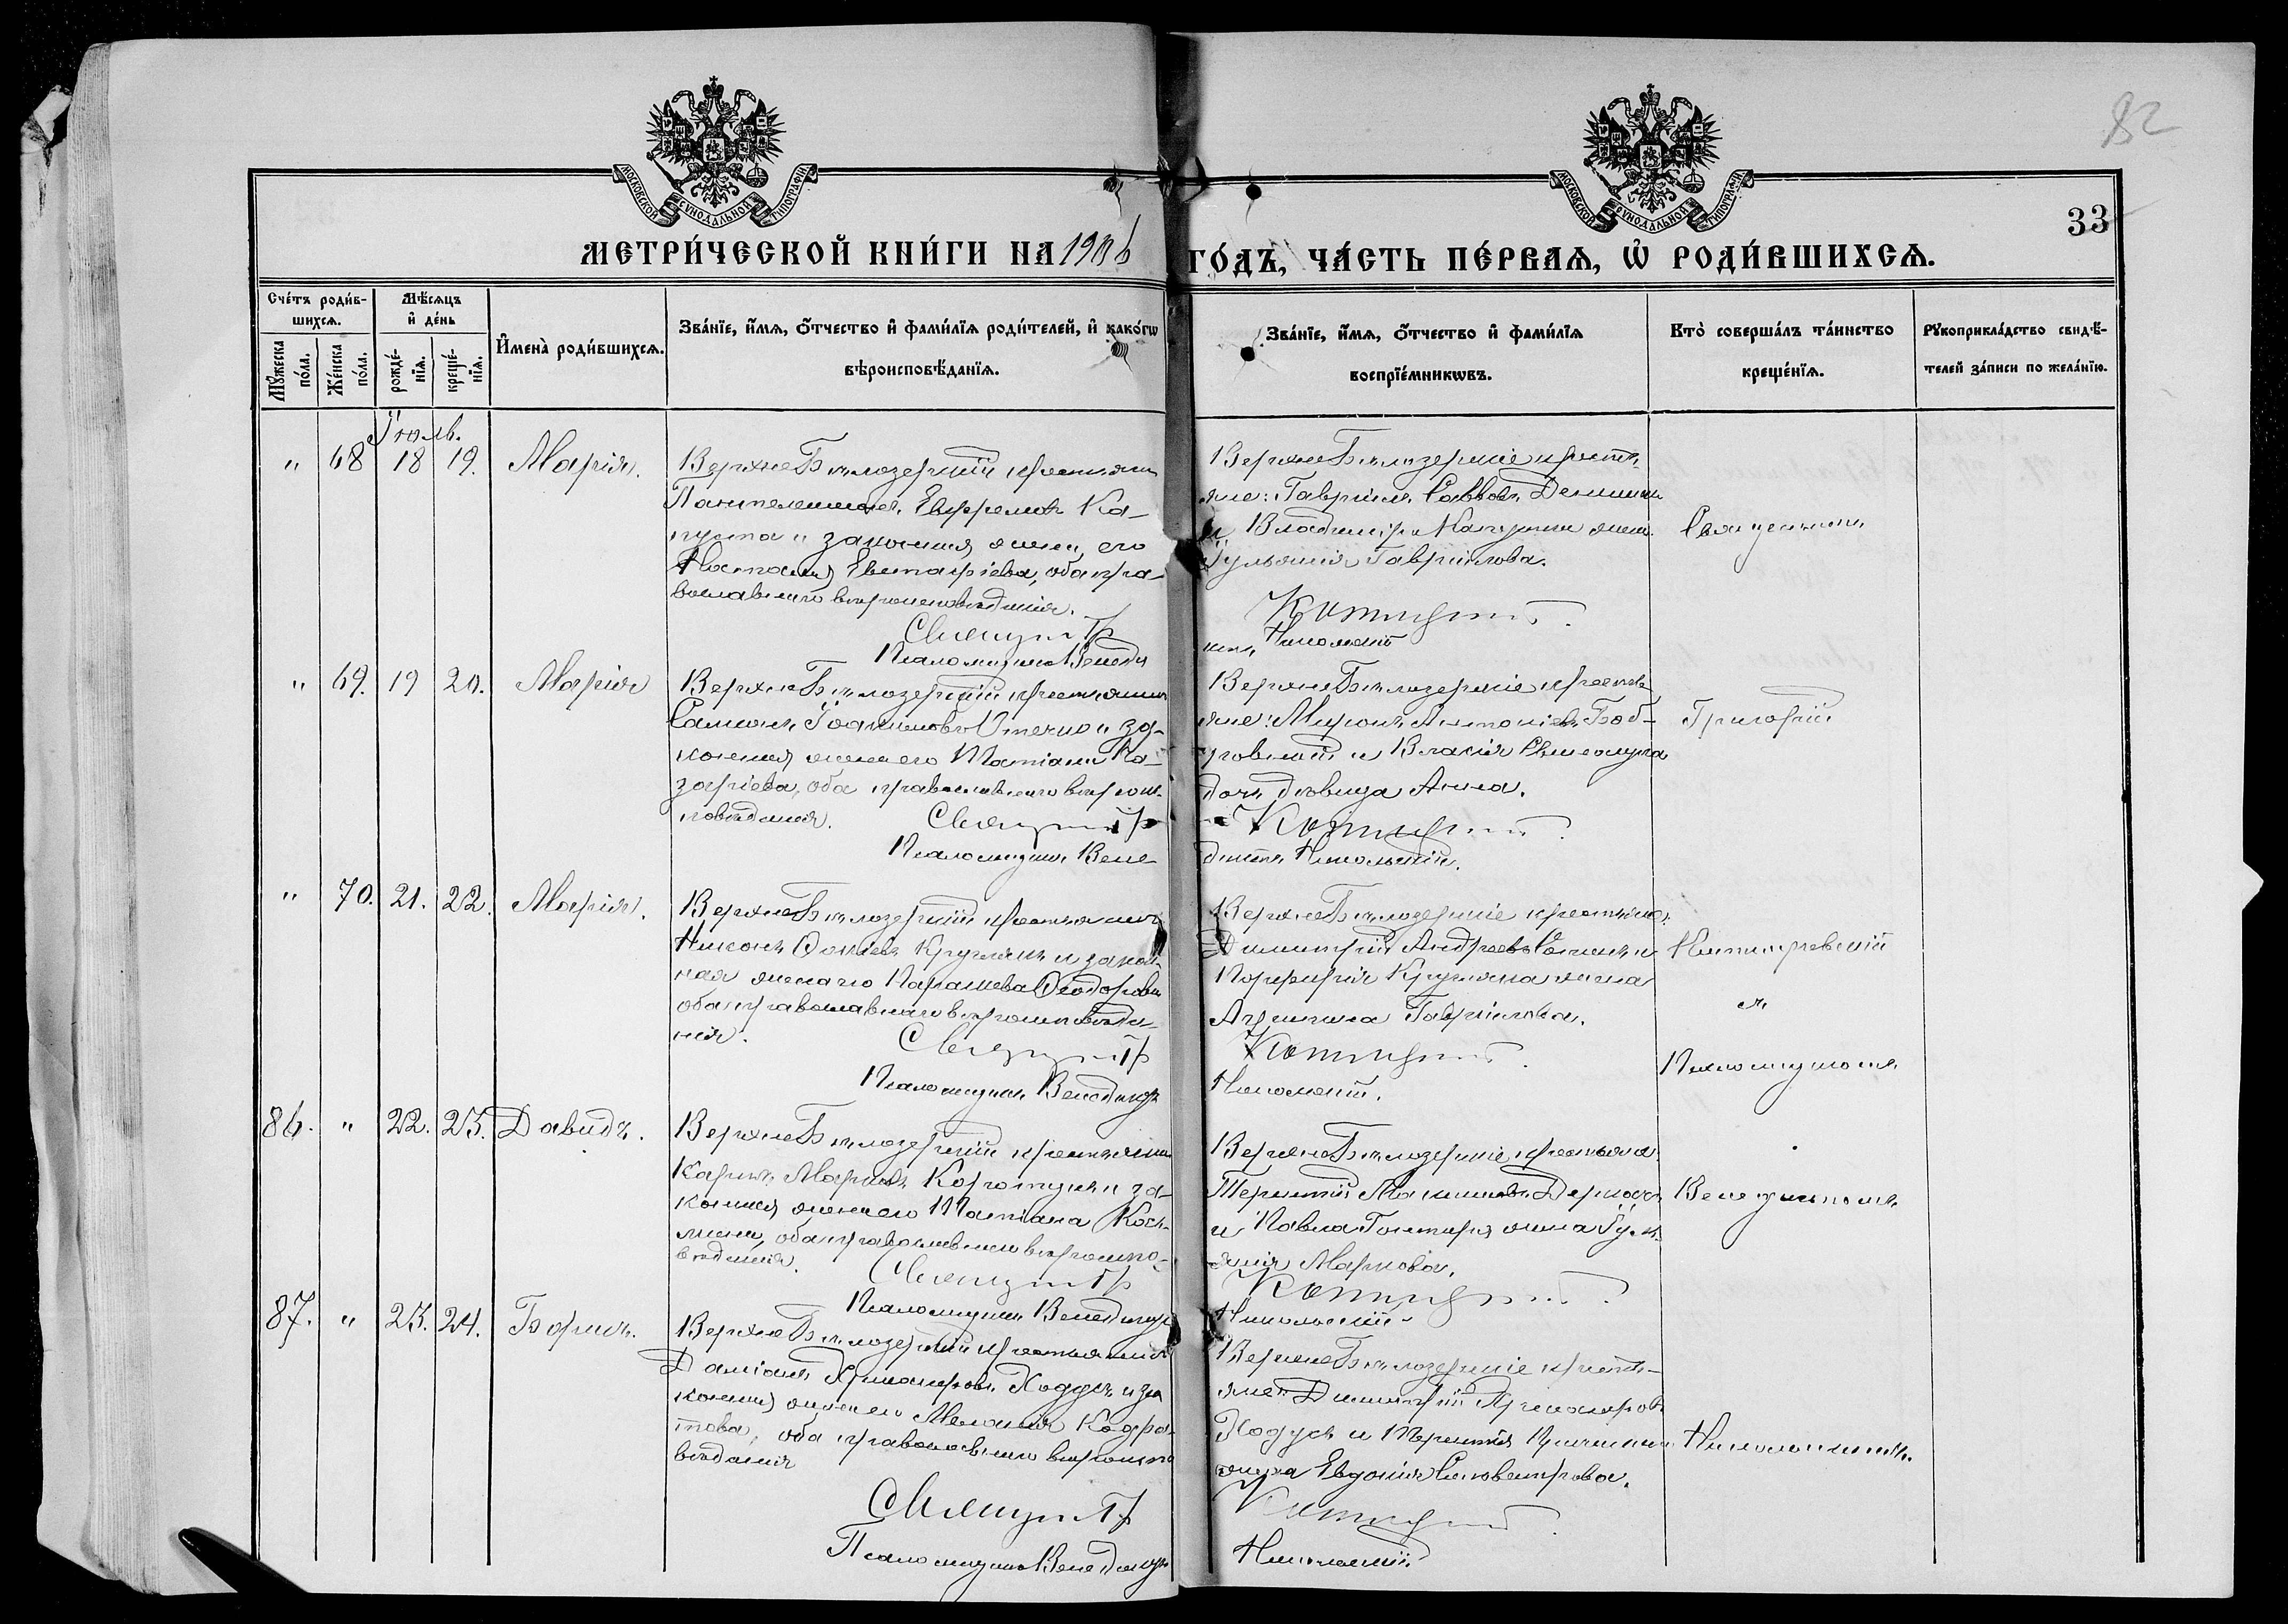 82
МОСКОВСКОЙ СѴНОДАЛЬНОЙ ТИПОГРАФІИ
МОСКОВСКОЙ СѴНОДАЛЬНОЙ ТИПОГРАФІИ
33
МЕТРИ́ЧЕСКОЙ КНИ́ГИ НА 1906 ГО́ДЪ, ЧА́СТЬ ПЕ́РВАѦ, Ѡ҆ РОДИ́ВШИХСѦ.
Сче́тъ роди́в-
шихсѧ.
Мꙋ́жеска по́ла.
Же́нска по́ла.
Мѣ́сѧцъ
и҆ де́нь
рожде́-
нїѧ.
креще́-
нїѧ.
И҆мена̀ роди́вшихсѧ.
Зва́нїе, и҆́мѧ, ѻ҆́тчество и҆ фами́лїѧ роди́телей, и҆ како́гѡ
вѣроисповѣ́данїѧ.
Зва́нїе, и҆́мѧ, ѻ҆́тчество и҆ фами́лїѧ
воспрїе́мникѡвъ.
Кто̀ соверша́лъ та́инство
креще́нїѧ.
Рꙋкоприкла́дство свидѣ́-
телей за́писи по жела́нїю.
Іюль.
" 68 18 19. Марія.
ВерхнеБѣлозерскій крестьянинъ
Пантелеимонъ Ефремовъ Ка-
пуста и законная жена его
Евстафіева, оба пра-
вославнаго вѣроисповѣданія.
Священ. Гр
Псаломщикъ Венеди
ВерхнеБѣлозерскіе кресть-
яне: Гавріилъ Саввовъ
и Владиміра Капусты жена
Іульянія Гавріилова.
Котицкій.
ктъ Никольскій
Священникъ
" 69. 19 20. Марія
ВерхнеБѣлозерскій крестьянинъ
Самсонъ Іоакимовъ и за-
конная жена его Татіана На-
заріева, оба православнаго вѣроис-
повѣданія. Священ. Гр
Псаломщикъ Вене
ВерхнеБѣлозерскіе кресть-
яне: Миронъ Антоніевъ Боб-
ровскій и Власія
дочь дѣвица Анна.
Котицкій.
диктъ Никольскій.
Григорій
" 70. 21. 22. Марія.
ВерхнеБѣлозерскій крестьянинъ
Никонъ Кругликъ и закон-
ная жена его Параскева Ѳеодорова
оба православнаго вѣроисповѣда-
нія. Священ. Гр
Псаломщикъ Венедиктъ
ВерхнеБѣлозерскіе крестьяне:
Димитрій Андреевъ и
Порфирія Круглика жена
Агрипина Гавріилова.
Котицкій.
Никольскій.
Котицкій
съ
Псаломщикомъ
86. " 22. 23. Давидъ.
ВерхнеБѣлозерскій крестьянинъ
Карпъ Марковъ и за-
конная жена его Татіана Кось-
мина, оба православнаго вѣроиспо-
вѣданія. Священ. Гр
Псаломщикъ Венедиктъ
ВерхнеБѣлозерскіе крестьяне:
Терентій Максимовъ Деркачъ
и Павла жена Іуль-
янія Маркова.
Котицкій.
Никольскій.
Венедиктомъ
87. " 23. 24. Борисъ.
ВерхнеБѣлозерскій крестьянинъ
Даміанъ Ходусъ и за-
конная жена его Меланія Кодра-
това, оба православнаго вѣроиспо-
вѣданія
Священ. Гр
Псаломщикъ Венедиктъ
ВерхнеБѣлозерскіе кресть-
яне: Димитрій
Ходусъ и Терентія
жена Евдокія Селивестрова.
Котицкій.
Никольскій
Никольскимъ.